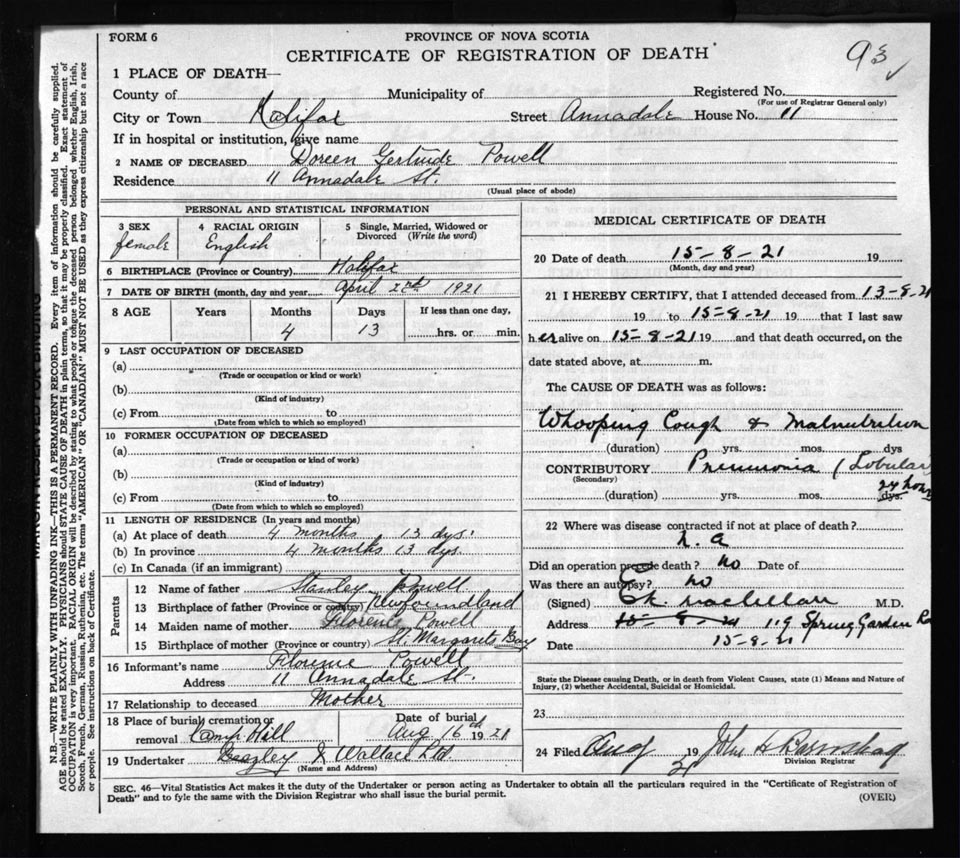 FORM 6
PROVINCE OF NOVA SCOTIA
CERTIFICATE OF REGISTRATION OF DEATH
93
1 PLACE OF DEATH—
County of Municipality of Registered No.
(For use of Registrar General only)
City or Town Halifax Street Annadale House No. 11
If in hospital or institution, give name
2 NAME OF DECEASED Doreen Gertrude Powell
Residence 11 Annadale St.
(Usual place of abode)
PERSONAL AND STATISTICAL INFORMATION
3 SEX female
4 RACIAL ORIGIN English
5 Single, Married, Widowed or Divorced (Write the word)
6 BIRTHPLACE (Province or Country) Halifax
7 DATE OF BIRTH (month, day and year) April 1921
8 AGE Years Months Days If less than one day,
4 13 hrs. or min.
9 LAST OCCUPATION OF DECEASED
(a)
(Trade or occupation or kind or work)
(b)
(Kind of industry)
(c) From to
(Date from which to which so employed)
10 FORMER OCCUPATION OF DECEASED
(a)
(Trade or occupation or kind of work)
(b)
(Kind of industry)
(c) From to
(Date from which to which so employed)
11 LENGTH OF RESIDENCE (In years and months)
(a) At place of death 4 months 13 dys.
(b) In province 4 months 13 dys.
(c) In Canada (if an immigrant)
Parents
12 Name of father Stanley Powell
13 Birthplace of father (Province or country) Newfoundland
14 Maiden name of mother Florence Powell
15 Birthplace of mother (Province or country) St. Margarets Bay
16 Informant's name Florence Powell
Address 11 Annadale St.
17 Relationship to deceased Mother
18 Place of burial cremation or removal Camp Hill
Date of burial Aug 16th 1921
19 Undertaker Wallace Ltd.
(Name and Address)
MEDICAL CERTIFICATE OF DEATH
20 Date of death 15-8-21 19
(Month, day and year)
21 I HEREBY CERTIFY, that I attended deceased from 13-8-21
19 to 15-8-21 19 that I last saw
her alive on 15-8-21 19 and that death occurred, on the
date stated above, at m.
The CAUSE OF DEATH was as follows:
Whooping Cough & Malnutrition
(duration) yrs. mos. dys
CONTRIBUTORY Pneumonia (Lobular
(Secondary)
24 hours
(duration) yrs. mos. dys.
22 Where was disease contracted if not at place of death?
Did an operation precede death? no Date of
Was there an autopsy? no
(Signed) M.D.
Address 15-8-21 119 Spring Garden Rd
Date 15-8-21
State the Disease causing Death, or in death from Violent Causes, state (1) Means and Nature of
Injury, (2) whether Accidental, Suicidal or Homicidal.
23
24 Filed Aug 19 21 John
Division Registrar
SEC. 46—Vital Statistics Act makes it the duty of the Undertaker or person acting as Undertaker to obtain all the particulars required in the "Certificate of Registration of
Death" and to fyle the same with the Division Registrar who shall issue the burial permit.
(OVER)
MARGIN RESERVED FOR BINDING
N.B.—WRITE PLAINLY WITH UNFADING INK—THIS IS A PERMANENT RECORD. Every item of information should be carefully supplied.
AGE should be stated EXACTLY. PHYSICIANS should STATE CAUSE OF DEATH in plain terms, so that it may be properly classified. Exact statement of
OCCUPATION is very important. RACIAL ORIGIN will be described by stating to what people or tongue the deceased person belonged whether English, Irish,
Scotch, French, German, Russian, Ruthenian, etc. The terms "AMERICAN" OR "CANADIAN" MUST NOT BE USED as they express citizenship but not a race
or people. See instructions on back of Certificate.